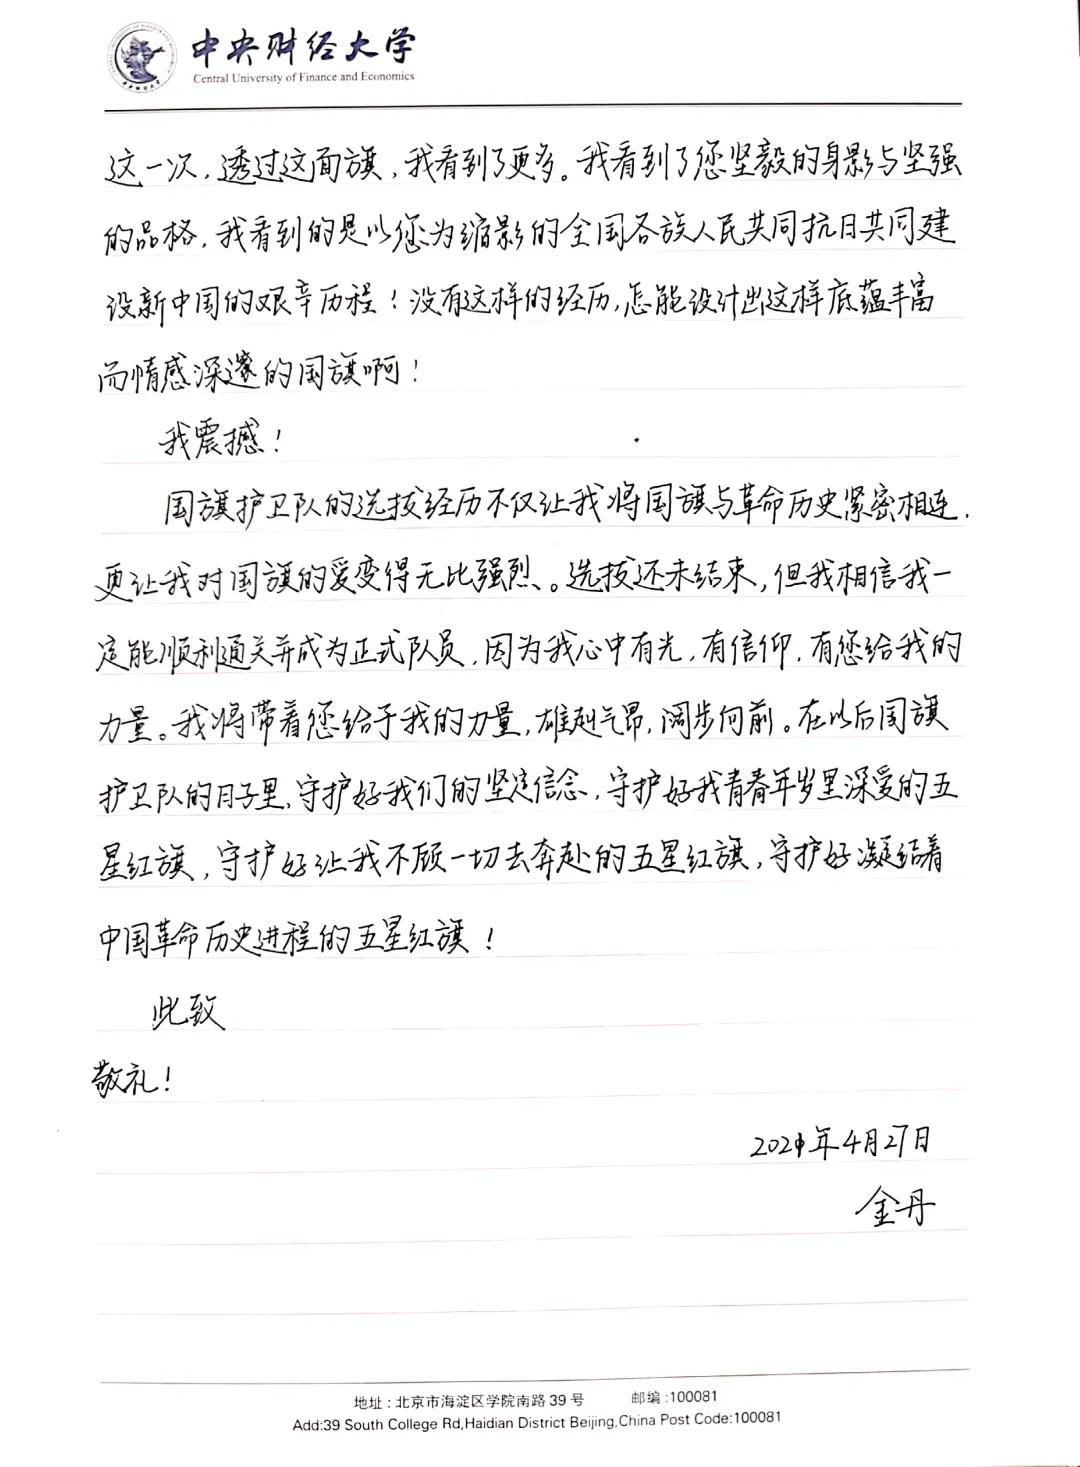 中央财经大学
Central University of Finance and Economics
这一次，透过这面旗，我看到了更多。我看到了您坚毅的身影与坚强
的品格，我看到的是以您为缩影的全国各族人民共同抗日共同建
设新中国的艰辛历程！没有这样的经历，怎能设计出这样底蕴丰富
而情感深邃的国旗啊！
我震撼！
国旗护卫队的选拔经历不仅让我将国旗与革命历史紧密相连，
更让我对国旗的爱变得无比强烈。选拔还未结束，但我相信我一
定能顺利通关并成为正式队员，因为我心中有光，有信仰，有您给我的
力量。我将带着您给予我的力量，雄赳气昂，阔步向前。在以后国旗
护卫队的日子里，守护好我们的坚定信念，守护好我青春年岁里深爱的五
星红旗，守护好让我不顾一切去奔赴的五星红旗，守护好凝结着
中国革命历史进程的五星红旗！
此致
敬礼！
2024年4月27日
金丹
地址：北京市海淀区学院南路39号 邮编:100081
Add:39 South College Rd,Haidian District Beijing,China Post Code:100081